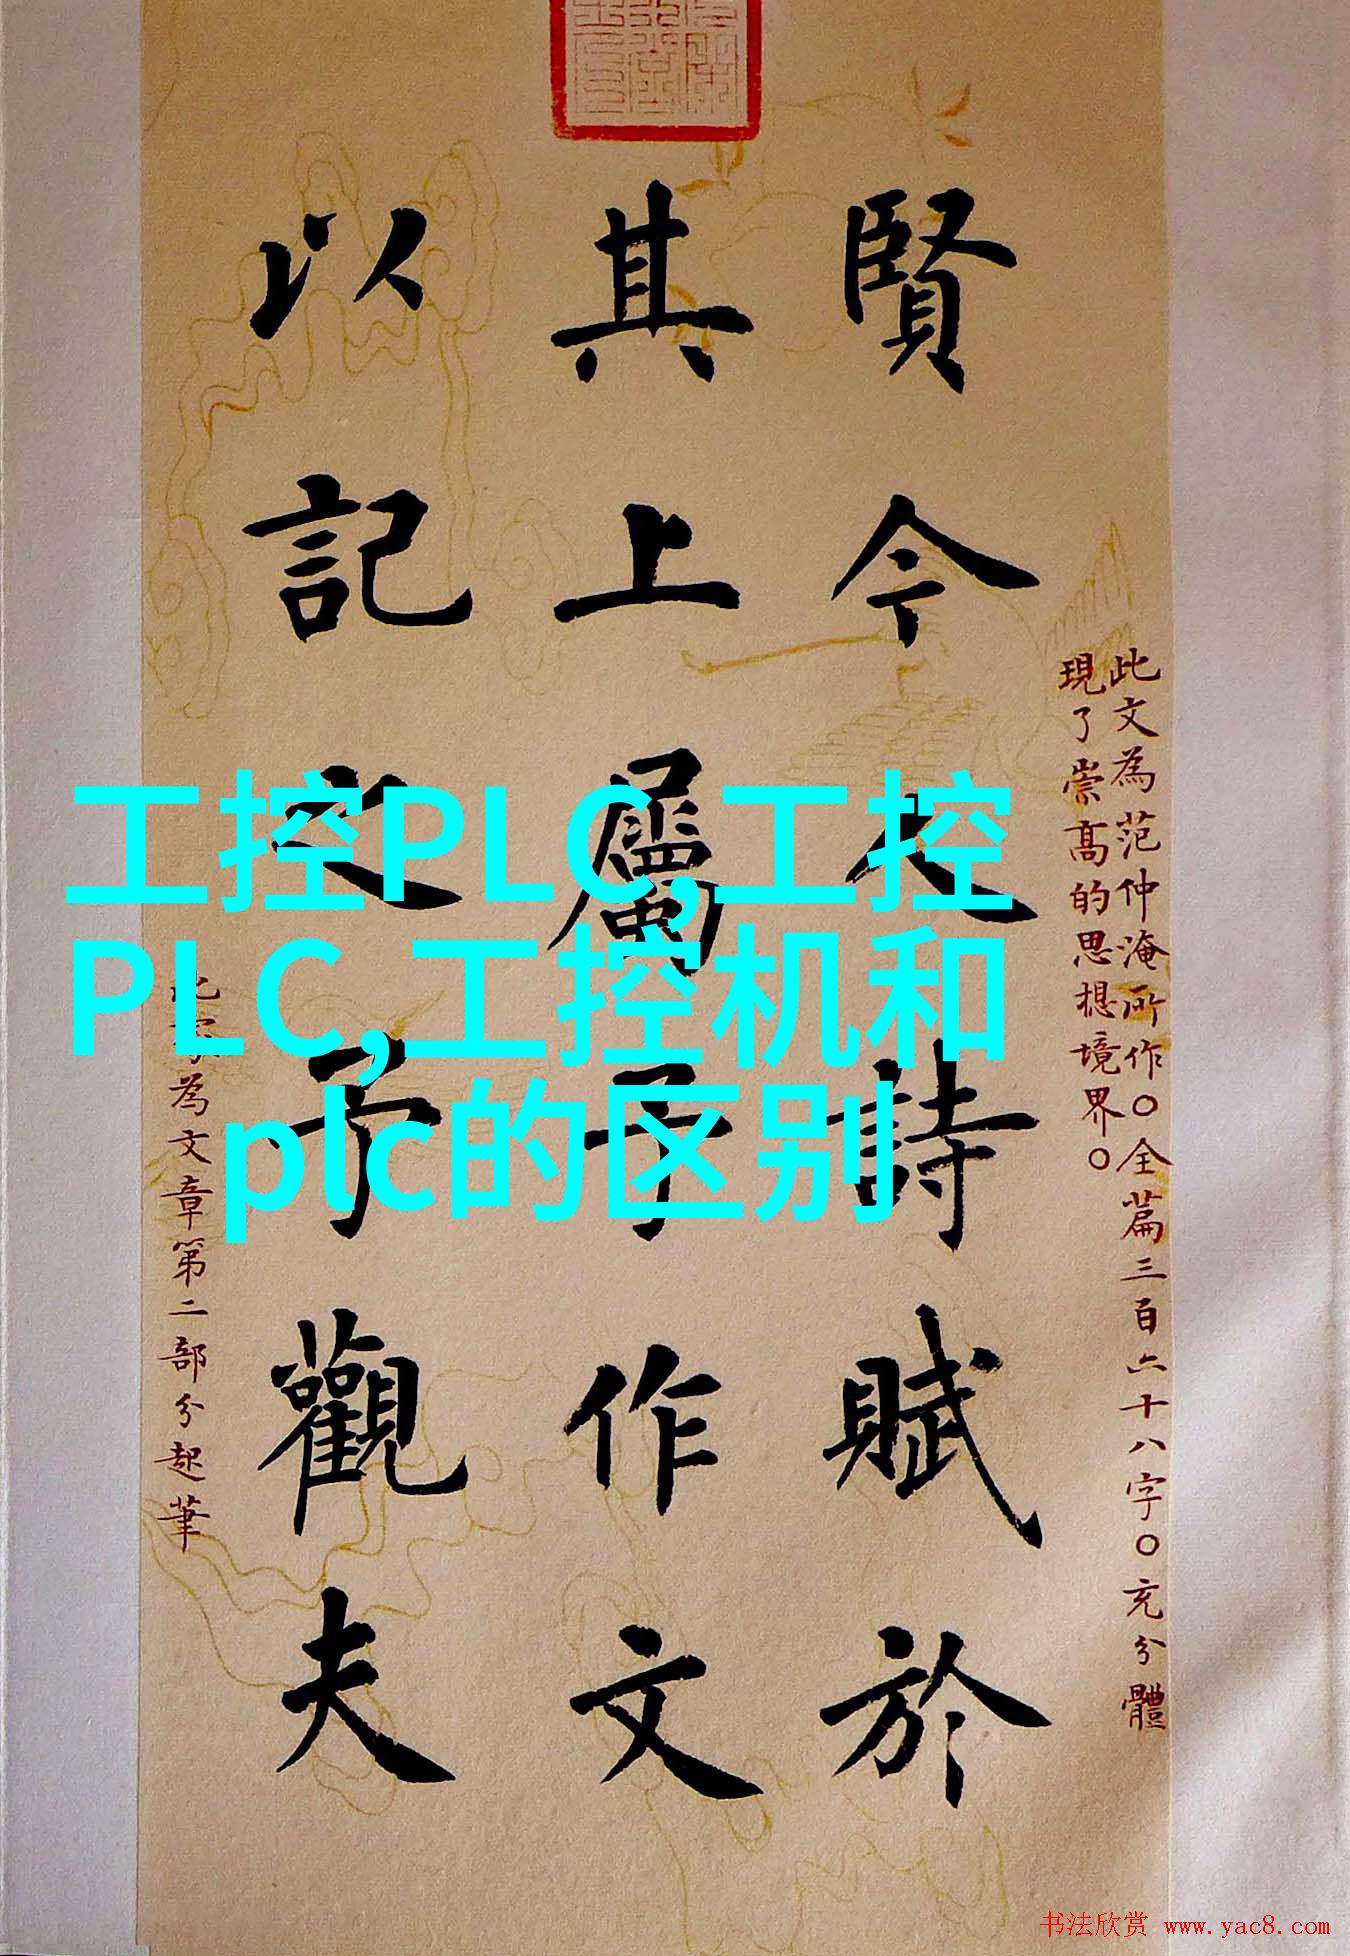 此文為范仲淹所作〇全篇三百六十八字〇充分體
現了崇高的思想境界〇
賢今人詩賦於
其上屬予作文
以記之予觀夫
為文章第二部分起筆
工控PLC,工控
PLC,工控机和
plc的区别
书法欣赏 www.yac8.com